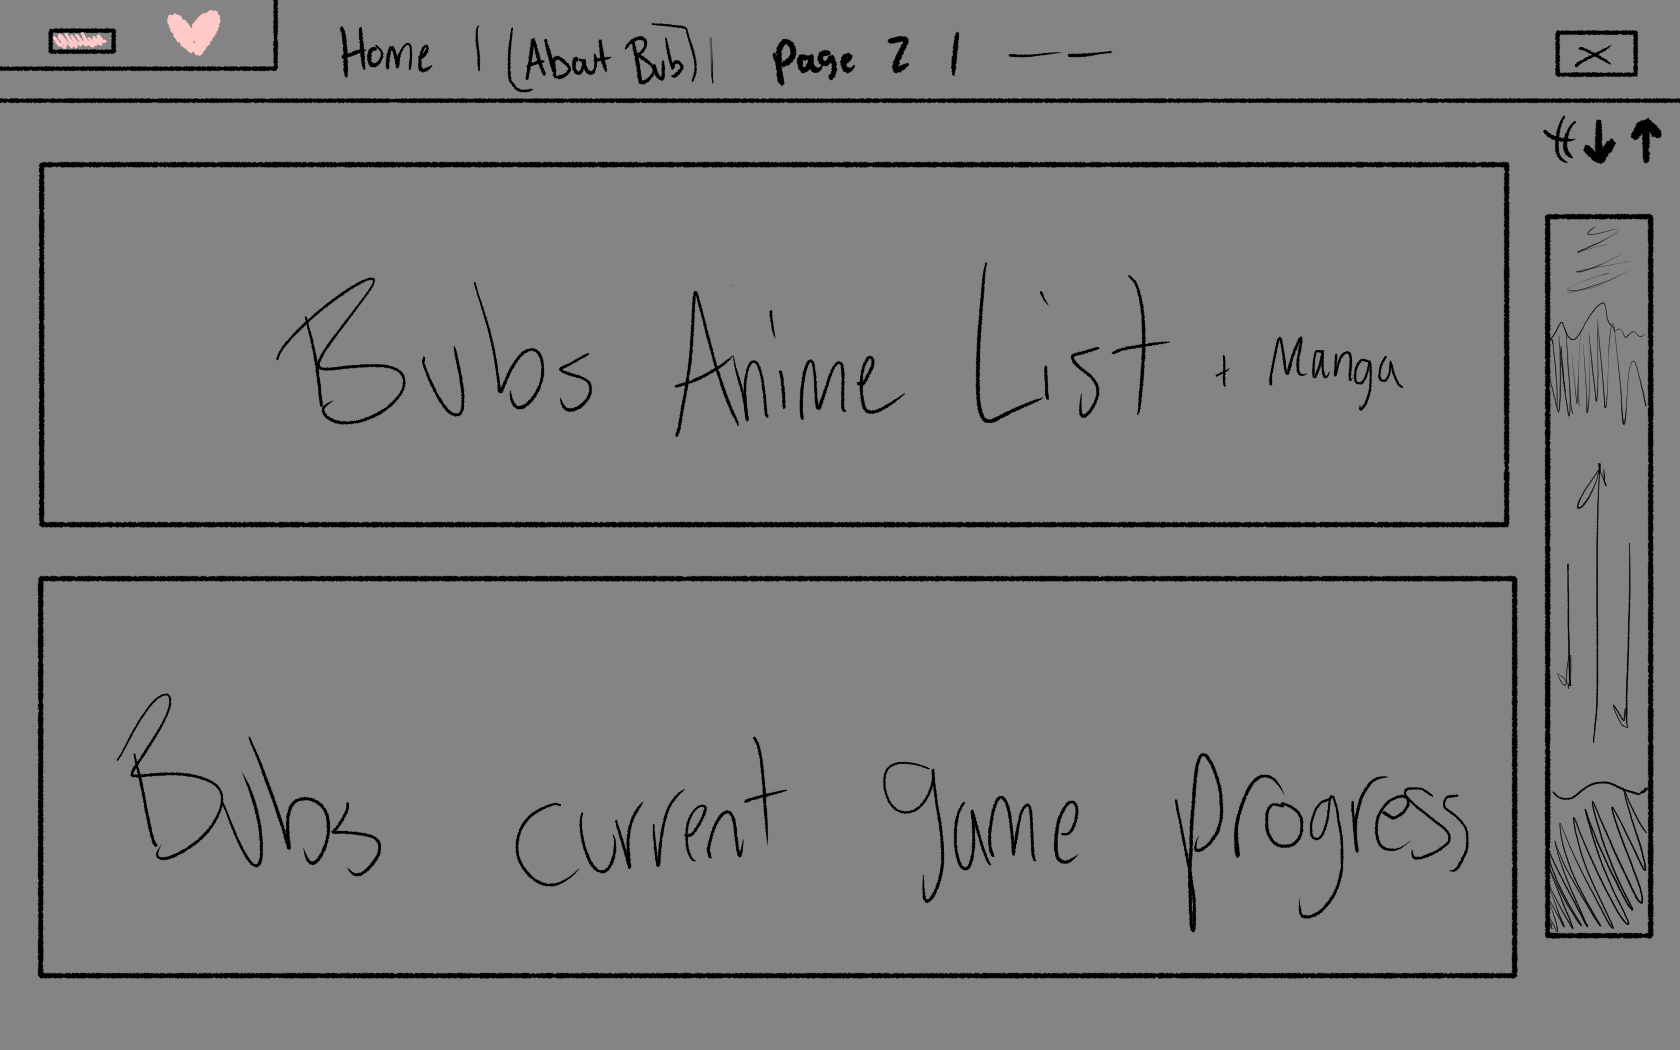 Home | (About Bub) | Page 2 | — —
X
Bubs Anime List + Manga
Bubs current game progress